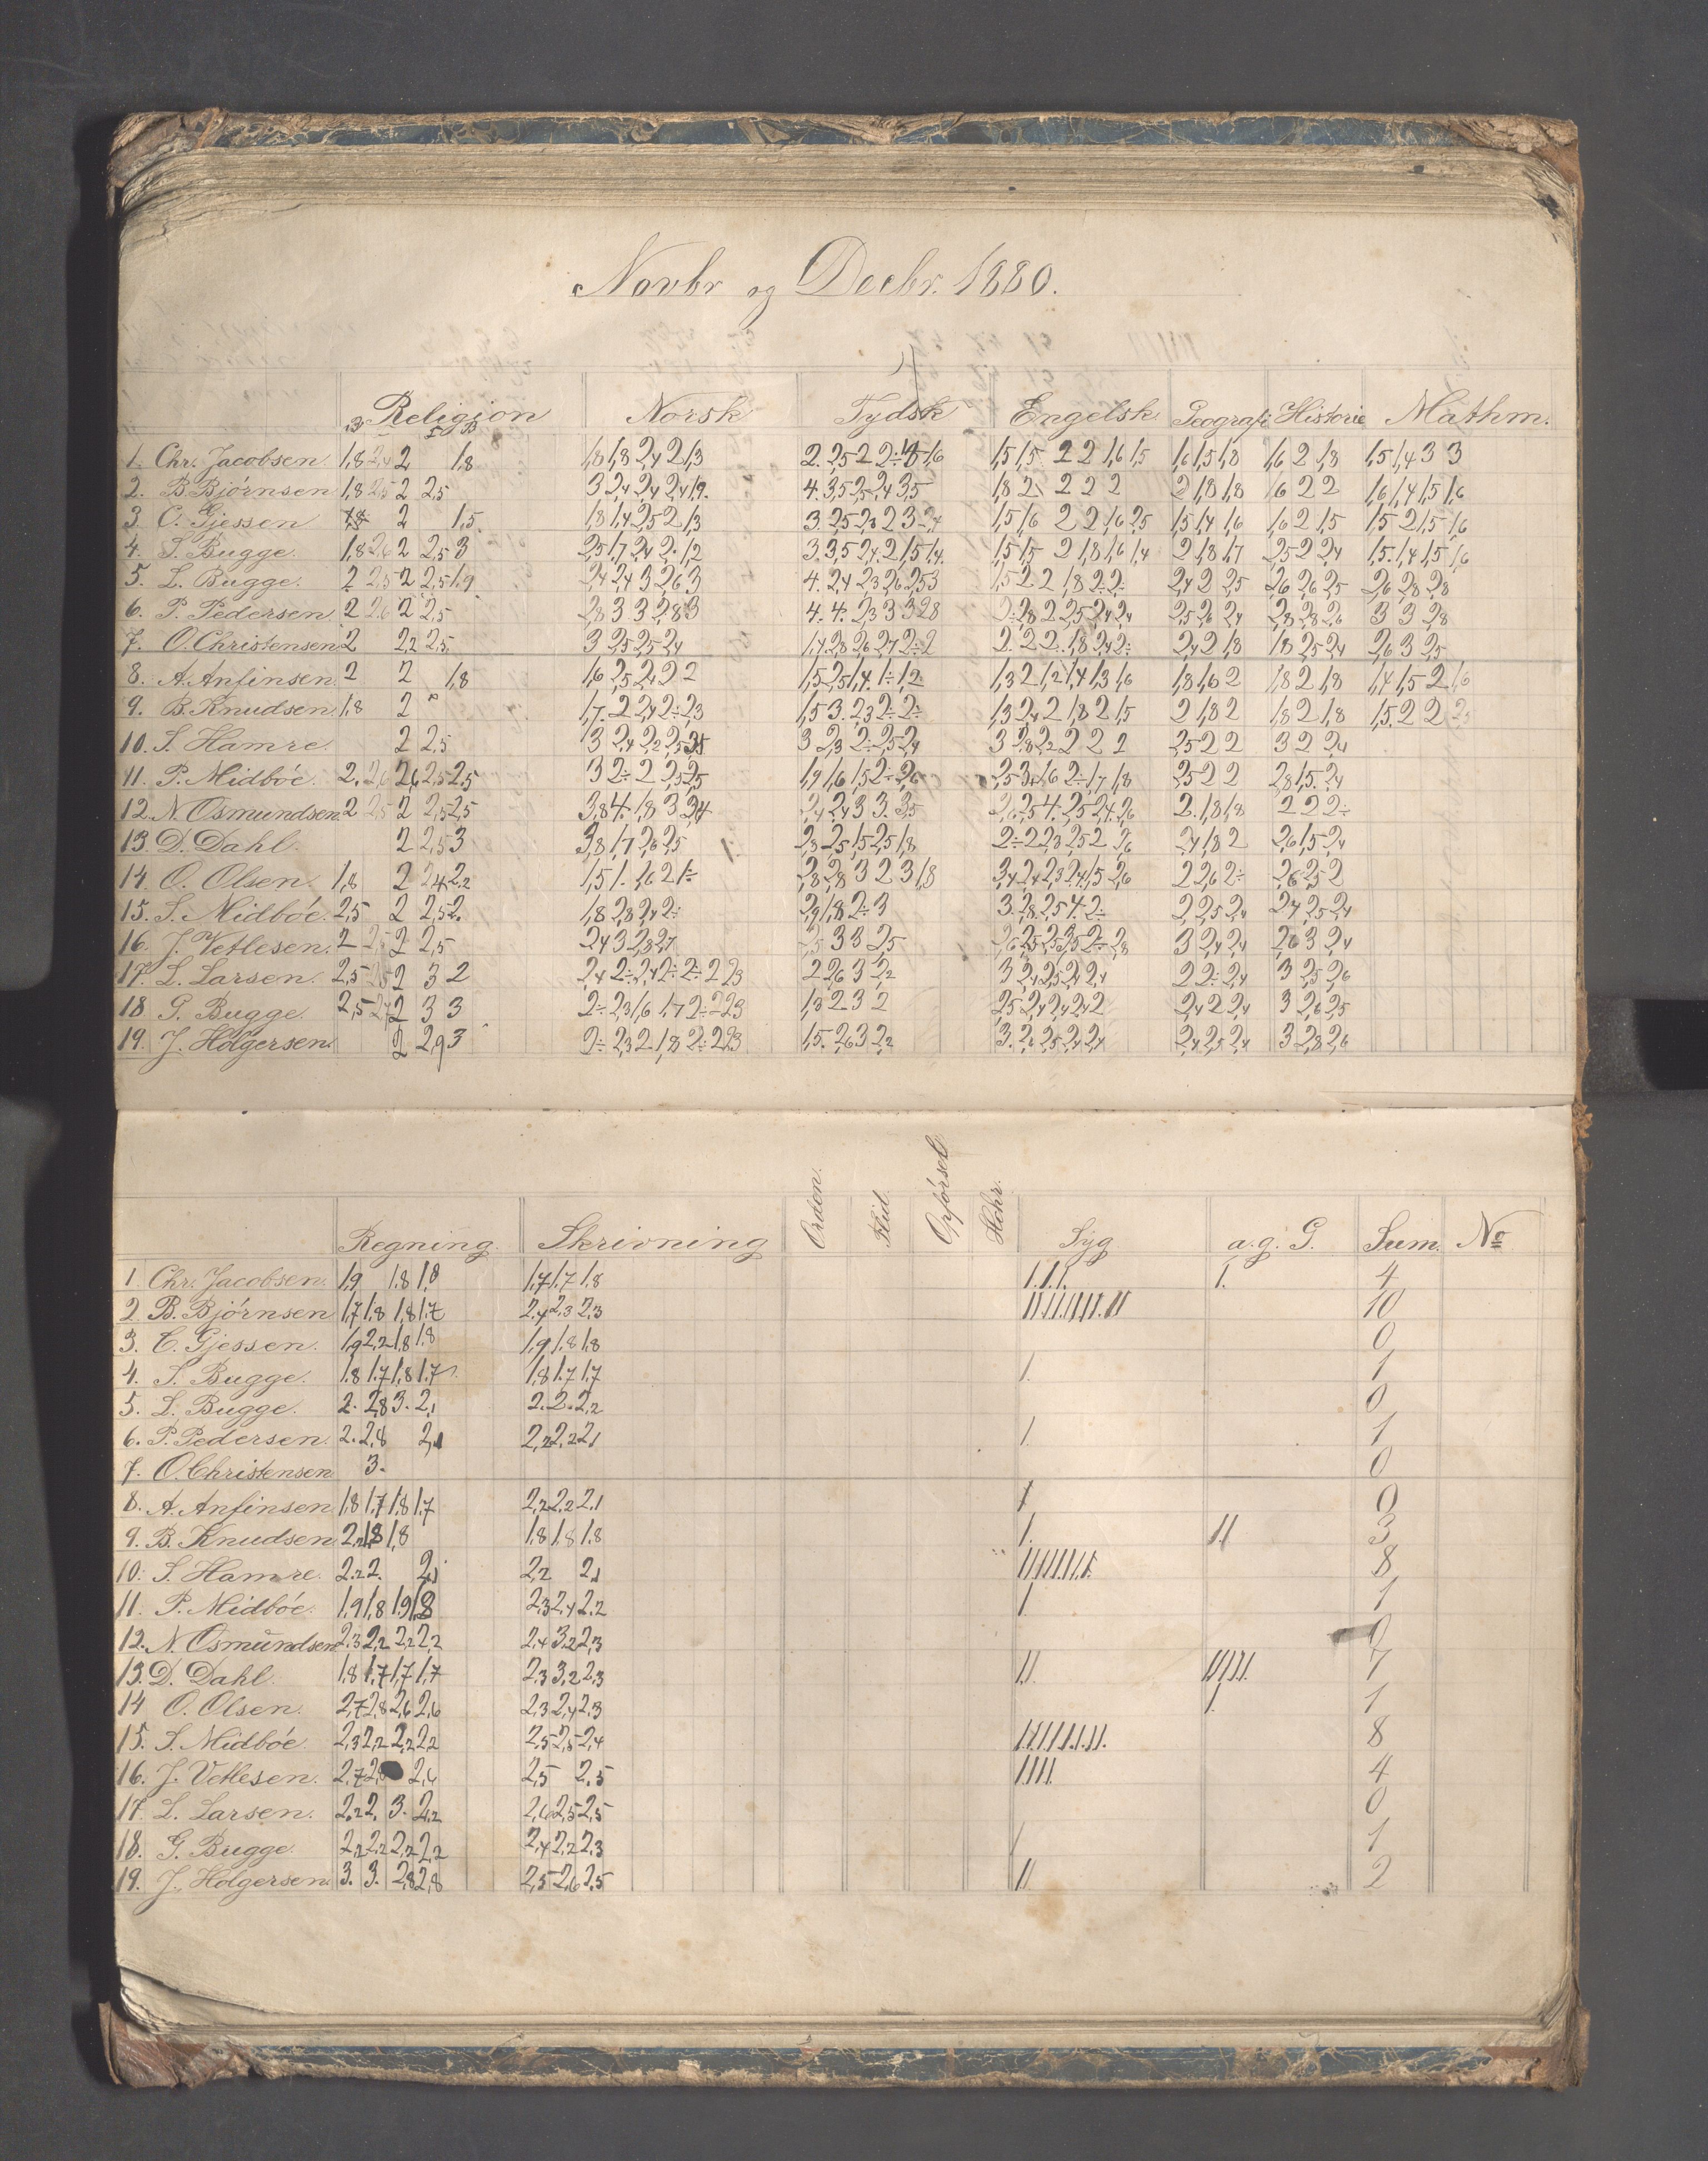 Novbr og Decbr. 1880.
Religion Norsk Tydsk Engelsk Geografi Historie Mathm.
1. Chr. Jacobsen. 1,8 2,4 2 1,8 1,8 1,8 2,4 2 1,3 1,6 1,5 1,8 1,6 2 1,8 1,5 1,4 3 3
2. B. Bjørnsen 1,8 2,5 2 2,5 3 2,4 2,4 2,4 1,9. 1,8 2 2 2 2 2 1,8 1,8 1,6 2 2 1,6 1,4 1,5 1,6
3. C. Gjessen 2 1,5 1,8 1,4 2,5 2 1,3 1,5 1,6 2 2 1,6 2,5 1,5 1,4 1,6 1,6 2 1,5 1,5 2 1,5 1,6
4. S. Bugge. 1,8 2,6 2 2,5 3 2,5 1,7 2,4 2. 1,2 1,5 1,5 2 1,8 1,6 1,4 2 1,8 1,7 2,5 2 2,4 1,5. 1,4 1,5 1,6
5. L. Bugge. 2 2,5 2 2,5 1,9 2,4 2,4 3 2,6 3 4. 2,4 2,3 2,6 2,5 3 2,4 2 2,5 2,6 2,6 2,5 2,6 2,8 2,8
6. P. Pedersen 2 2,6 2 2,5 2,8 3 3 2,8 3 4. 4. 2,3 3 3 2,8 2,5 2,6 2,4 2,8 2,8 2,6 3 3 2,8
7. O. Christensen 2 2,2 2,5 3 2,5 2,5 2,4 2,4 2 1,8 1,8 2,5 2,4 2,6 3 2,5
8. A. Anfinsen. 2 2 1,8 1,6 2,5 2,4 2 2 1,3 2 1,2 1,4 1,3 1,6 1,8 1,6 2 1,8 2 1,8 1,4 1,5 2 1,6
9. B. Knudsen 1,8 2 1,7. 2 2,4 2÷ 2,3 1,5 3. 2,3 2÷ 2÷ 1,3 2,4 2 1,8 2 1,5 2 1,8 2 1,8 2 1,8 1,5. 2 2
10. S. Hamre. 2 2,5 3 2,3 2÷ 2,5 2,4 3 2,8 2,2 2 2 2 2,5 2 2 3 2 2,4
11. P. Midbøe. 2. 2,6 2,6 2,5 2,5 3 2÷ 2 2,5 2,5 1,9 1,6 1,5 2÷ 2,6 2,5 2 2 2,8 1,5. 2,4
12. N. Osmundsen. 2 2,5 2 2,5 2,5 3,8 4. 1,8 3 3,4 2,4 2,4 3 3. 3,5 2. 1,8 1,8 2 2 2÷
13. D. Dahl. 2 2,5 3 3,8 1,7 2,6 2,5 2,3 2,5 1,5 2,5 1,8 2,4 1,8 2 2,6 1,5 2,4
14. O. Olsen. 1,8 2 2,4 2,2 1,5 1. 1,6 2 1÷ 2,8 2,8 3 2 3 1,8 3,4 2,4 2,3 2,4 1,5 2,6 2 2,6 2÷ 2,6 2,5 2
15. S. Midbøe. 2,5 2 2,5 2. 1,8 2,8 2,4 2÷ 2,9 1,8 2÷ 3 3. 2,8. 2,5 4. 2÷ 2 2,5 2,4 2,4 2,5 2,4
16. J. Vetlesen. 2 2 2,5 2,4 3 2,8 2,7 2,5 3 3 2,5 3 2,4 2,4 2,6 3 2,4
17. L. Larsen. 2,5 2,5 2 3 2 2,4 2÷ 2,4 2÷ 2÷ 2 2,3 2 2,6 3 2,2 3 2,4 2,5 2,4 2,4 2 2÷ 2,4 3 2,5 2,6
18. G. Bugge. 2,5 2,7 2 3 3 2÷ 2,3 1,6 1,7 2÷ 2 2,3 1,8 2 3 2 2,5 2,4 2,4 2,4 2 2,4 2 2,4 3 2,6 2,5
19. J. Holgersen. 2 2,9 3 2÷ 2,3 2. 1,8 2÷ 2 2,3 1,5. 2,6 3 2,2 3. 2,5 2,4 2,4 2,4 2,5 2,4 3 2,8 2,6
Regning. Skrivning Orden. Flid. Opførsel Hchr. Syg a. g. G. Sum. No
1 Chr. Jacobsen. 1,9 1,8 1,8 1,7 1,7 1,8 1.1.1. 1. 4
2 B. Bjørnsen 1,7 1,8 1,8 1,7 2,4 2,3 2,3 10
3. C. Gjessen. 1,9 2,2 1,8 1,8 1,9 1,8 1,8 0
4. S. Bugge. 1,8 1,7 1,8 1,7 1,8 1,7 1,7 1. 1
5. L. Bugge. 2. 2,8 3. 2,1 2. 2. 2,2 0
6. P. Pedersen. 2. 2,8 2,1 2,2 2,2 2,1 1. 1
7. O. Christensen 3. 0
8. A. Anfinsen. 1,8 1,7 1,8 1,7 2,2 2,2 2,1 1 0
9. B. Knudsen 2,2 1,8 1,8 1,8 1,8 1,8 1. 11 3
10. S. Hamre. 2,2 2. 2,1 2,2 2,1 8
11. P. Midbøe. 1,9 1,8 1,9 1,8 2,3 2,4 2,2 1 1
12. N. Osmundsen 2,3 2,2 2,2 2,2 2,4 3,2 2,3 0
13. D. Dahl. 1,8 1,7 1,7 1,7 2,3 3,2 2,3 11. 11111. 7
14 O. Olsen. 2,7 2,8 2,6 2,6 2,3 2,4 2,3 1. 1
15. S. Midbøe. 2,3 2,2 2,2 2,2 2,5 2,5 2,4 8
16. J. Vetlesen. 2,7 2,6 2,5 2,5 1111. 4
17. L. Larsen. 2,2 2. 3. 2,2 2,6 2,5 2,5 0
18. G. Bugge. 2,2 2,2 2,2 2,2 2,4 2,2 2,3 1 1
19. J. Holgersen. 3. 3. 2,8 2,8 2,5 2,6 2,5 11 2